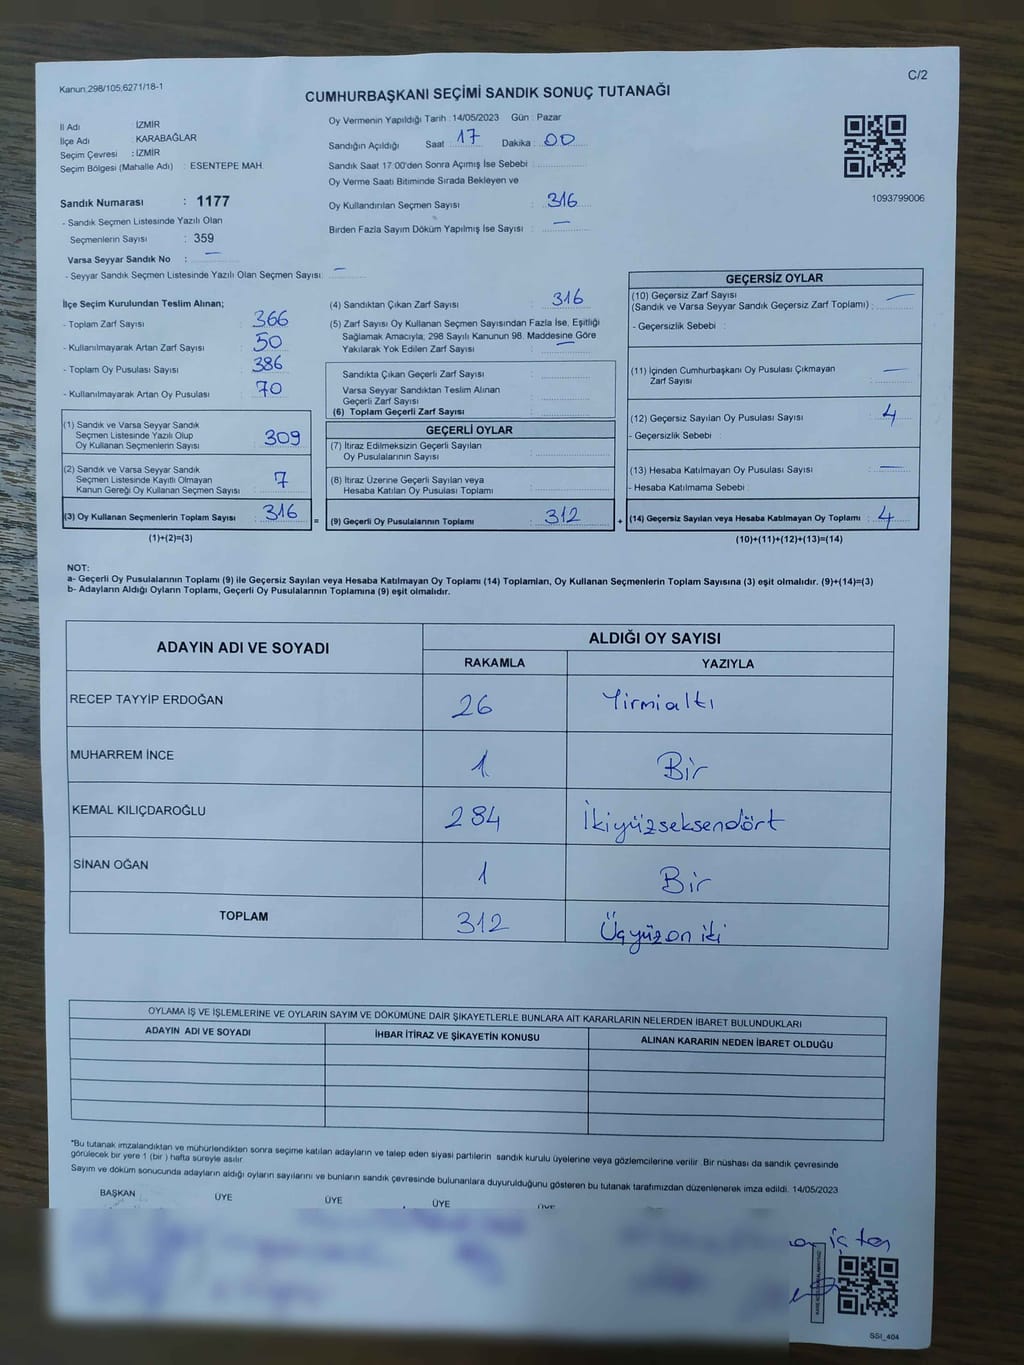 Kanun,298/105,6271/18-1
C/2
CUMHURBAŞKANI SEÇİMİ SANDIK SONUÇ TUTANAĞI
İl Adı : İZMİR
İlçe Adı : KARABAĞLAR
Seçim Çevresi : İZMİR
Seçim Bölgesi (Mahalle Adı) : ESENTEPE MAH.
Sandık Numarası : 1177
- Sandık Seçmen Listesinde Yazılı Olan
Seçmenlerin Sayısı : 359
Varsa Seyyar Sandık No : —
- Seyyar Sandık Seçmen Listesinde Yazılı Olan Seçmen Sayısı : —
Oy Vermenin Yapıldığı Tarih : 14/05/2023 Gün : Pazar
Sandığın Açıldığı Saat : 17 Dakika : 00
Sandık Saat 17:00'den Sonra Açımış İse Sebebi :
Oy Verme Saati Bitiminde Sırada Bekleyen ve
Oy Kullandırılan Seçmen Sayısı : 316
Birden Fazla Sayım Döküm Yapılmış İse Sayısı : —
1093799006
İlçe Seçim Kurulundan Teslim Alınan;
- Toplam Zarf Sayısı : 366
- Kullanılmayarak Artan Zarf Sayısı : 50
- Toplam Oy Pusulası Sayısı : 386
- Kullanılmayarak Artan Oy Pusulası : 70
(1) Sandık ve Varsa Seyyar Sandık
Seçmen Listesinde Yazılı Olup
Oy Kullanan Seçmenlerin Sayısı : 309
(2) Sandık ve Varsa Seyyar Sandık
Seçmen Listesinde Kayıtlı Olmayan
Kanun Gereği Oy Kullanan Seçmen Sayısı : 7
(3) Oy Kullanan Seçmenlerin Toplam Sayısı : 316
(1)+(2)=(3)
(4) Sandıktan Çıkan Zarf Sayısı : 316
(5) Zarf Sayısı Oy Kullanan Seçmen Sayısından Fazla İse, Eşitliği
Sağlamak Amacıyla, 298 Sayılı Kanunun 98. Maddesine Göre
Yakılarak Yok Edilen Zarf Sayısı : —
Sandıkta Çıkan Geçerli Zarf Sayısı :
Varsa Seyyar Sandıktan Teslim Alınan
Geçerli Zarf Sayısı :
(6) Toplam Geçerli Zarf Sayısı :
GEÇERLİ OYLAR
(7) İtiraz Edilmeksizin Geçerli Sayılan
Oy Pusulalarının Sayısı :
(8) İtiraz Üzerine Geçerli Sayılan veya
Hesaba Katılan Oy Pusulası Toplamı :
= (9) Geçerli Oy Pusulalarının Toplamı : 312
GEÇERSİZ OYLAR
(10) Geçersiz Zarf Sayısı
(Sandık ve Varsa Seyyar Sandık Geçersiz Zarf Toplamı) : —
- Geçersizlik Sebebi :
(11) İçinden Cumhurbaşkanı Oy Pusulası Çıkmayan
Zarf Sayısı : —
(12) Geçersiz Sayılan Oy Pusulası Sayısı : 4
- Geçersizlik Sebebi :
(13) Hesaba Katılmayan Oy Pusulası Sayısı : —
- Hesaba Katılmama Sebebi :
+ (14) Geçersiz Sayılan veya Hesaba Katılmayan Oy Toplamı : 4
(10)+(11)+(12)+(13)=(14)
NOT:
a- Geçerli Oy Pusulalarının Toplamı (9) ile Geçersiz Sayılan veya Hesaba Katılmayan Oy Toplamı (14) Toplamları, Oy Kullanan Seçmenlerin Toplam Sayısına (3) eşit olmalıdır. (9)+(14)=(3)
b- Adayların Aldığı Oyların Toplamı, Geçerli Oy Pusulalarının Toplamına (9) eşit olmalıdır.
ADAYIN ADI VE SOYADI ALDIĞI OY SAYISI
RAKAMLA YAZIYLA
RECEP TAYYİP ERDOĞAN 26 Yirmialtı
MUHARREM İNCE 1 Bir
KEMAL KILIÇDAROĞLU 284 İkiyüzseksendört
SİNAN OĞAN 1 Bir
TOPLAM 312 Üçyüzon iki
OYLAMA İŞ VE İŞLEMLERİNE VE OYLARIN SAYIM VE DÖKÜMÜNE DAİR ŞİKAYETLERLE BUNLARA AİT KARARLARIN NELERDEN İBARET BULUNDUKLARI
ADAYIN ADI VE SOYADI İHBAR İTİRAZ VE ŞİKAYETİN KONUSU ALINAN KARARIN NEDEN İBARET OLDUĞU
*Bu tutanak imzalandıktan ve mühürlendikten sonra seçime katılan adayların ve talep eden siyasi partilerin sandık kurulu üyelerine veya gözlemcilerine verilir. Bir nüshası da sandık çevresinde
görülecek bir yere 1 (bir ) hafta süreyle asılır.
Sayım ve döküm sonucunda adayların aldığı oyların sayılarını ve bunların sandık çevresinde bulunanlara duyurulduğunu gösteren bu tutanak tarafımızdan düzenlenerek imza edildi. 14/05/2023
BAŞKAN ÜYE ÜYE ÜYE ÜYE
SSI_404